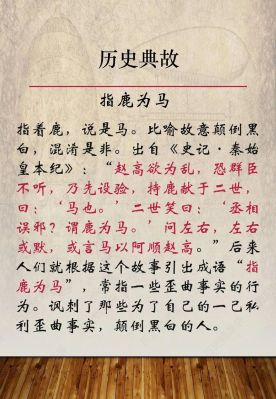 历史典故
指鹿为马
指着鹿，说是马。比喻故意颠倒黑
白，混淆是非。出自《史记·秦始
皇本纪》：“赵高欲为乱，恐群臣
不听，乃先设验，持鹿献于二世，
曰：‘马也。’二世笑曰：‘丞相
误邪？谓鹿为马。’问左右，左右
或默，或言马以阿顺赵高。”后来
人们就根据这个故事引出成语“指
鹿为马”，常指一些歪曲事实的行
为。讽刺了那些为了自己的一己私
利歪曲事实，颠倒黑白的人。